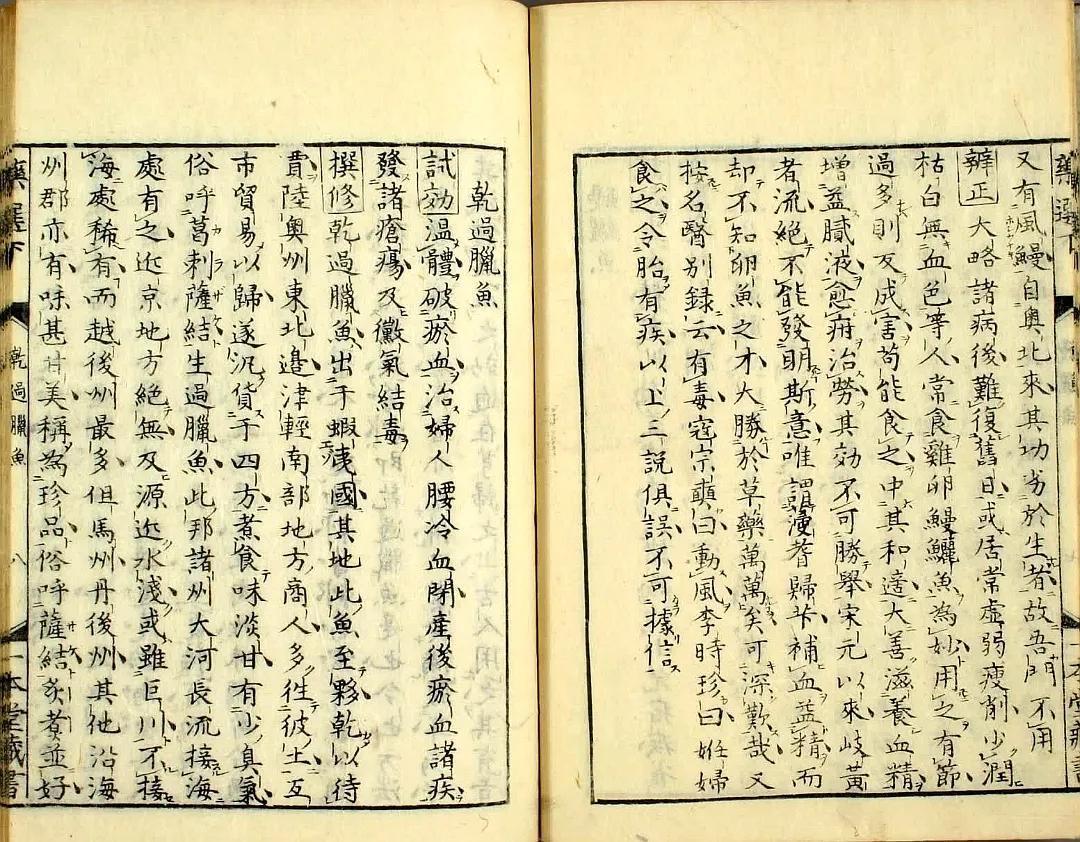 又有風鰻自奧北來其功劣於生者故吾門不用
辨正大略諸病後難復舊日或居常虛弱瘦削少潤
枯白無血色等人常食雞卵鰻鱺魚為妙用之有節
過多則反成害苟能食之中其和達大善滋養血精
增益膩液愈疳治勞其効不可勝舉宋元以來岐黃
者流絕不能發明斯意唯謂漫耆歸芐補血益精而
却不知卵魚之才大勝於草藥萬萬矣可深歎哉又
按名醫別錄云有毒寇宗奭曰動風李時珍曰姙婦
食之令胎有疾以上三說俱誤不可據信
乾過臘魚
試効溫體破瘀血治婦人腰冷血閉產後瘀血諸疾
發諸瘡瘍及黴氣結毒
撰修乾過臘魚出于蝦夷國其地此魚至夥乾以待
賈陸奧州東北邉津輕南部地方商人多徃彼土互
市貿易以歸遂汎貨于四方煮食味淡甘有少臭氣
俗呼葛剌薩結生過臘魚此邦諸州大河長流接海
處有之近京地方絕無及源近水淺或雖巨川不接
海處稀有而越後州最多但馬州丹後州其他沿海
州郡亦有味甚甘美稱為珍品俗呼薩結炙煮並好
藥選下
乾過臘魚
八
一本堂藏書